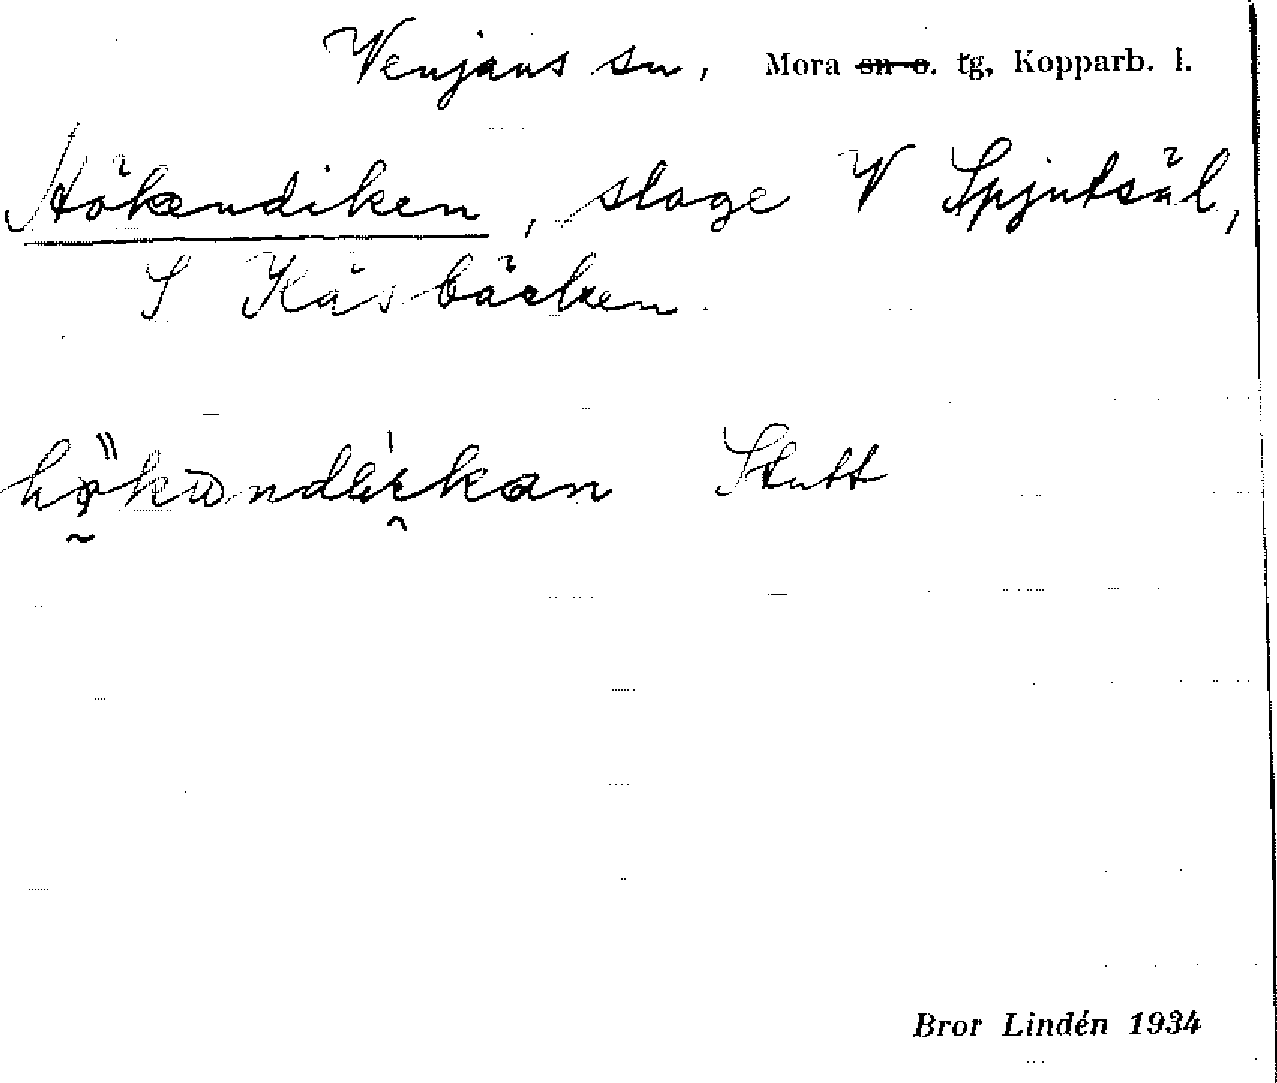 Venjans sn, Mora sn o. tg, Kopparb. l.
Hökendiken, sloge V Spjutsäl,
S Kåsbäcken
Stutt
Bror Lindén 1934